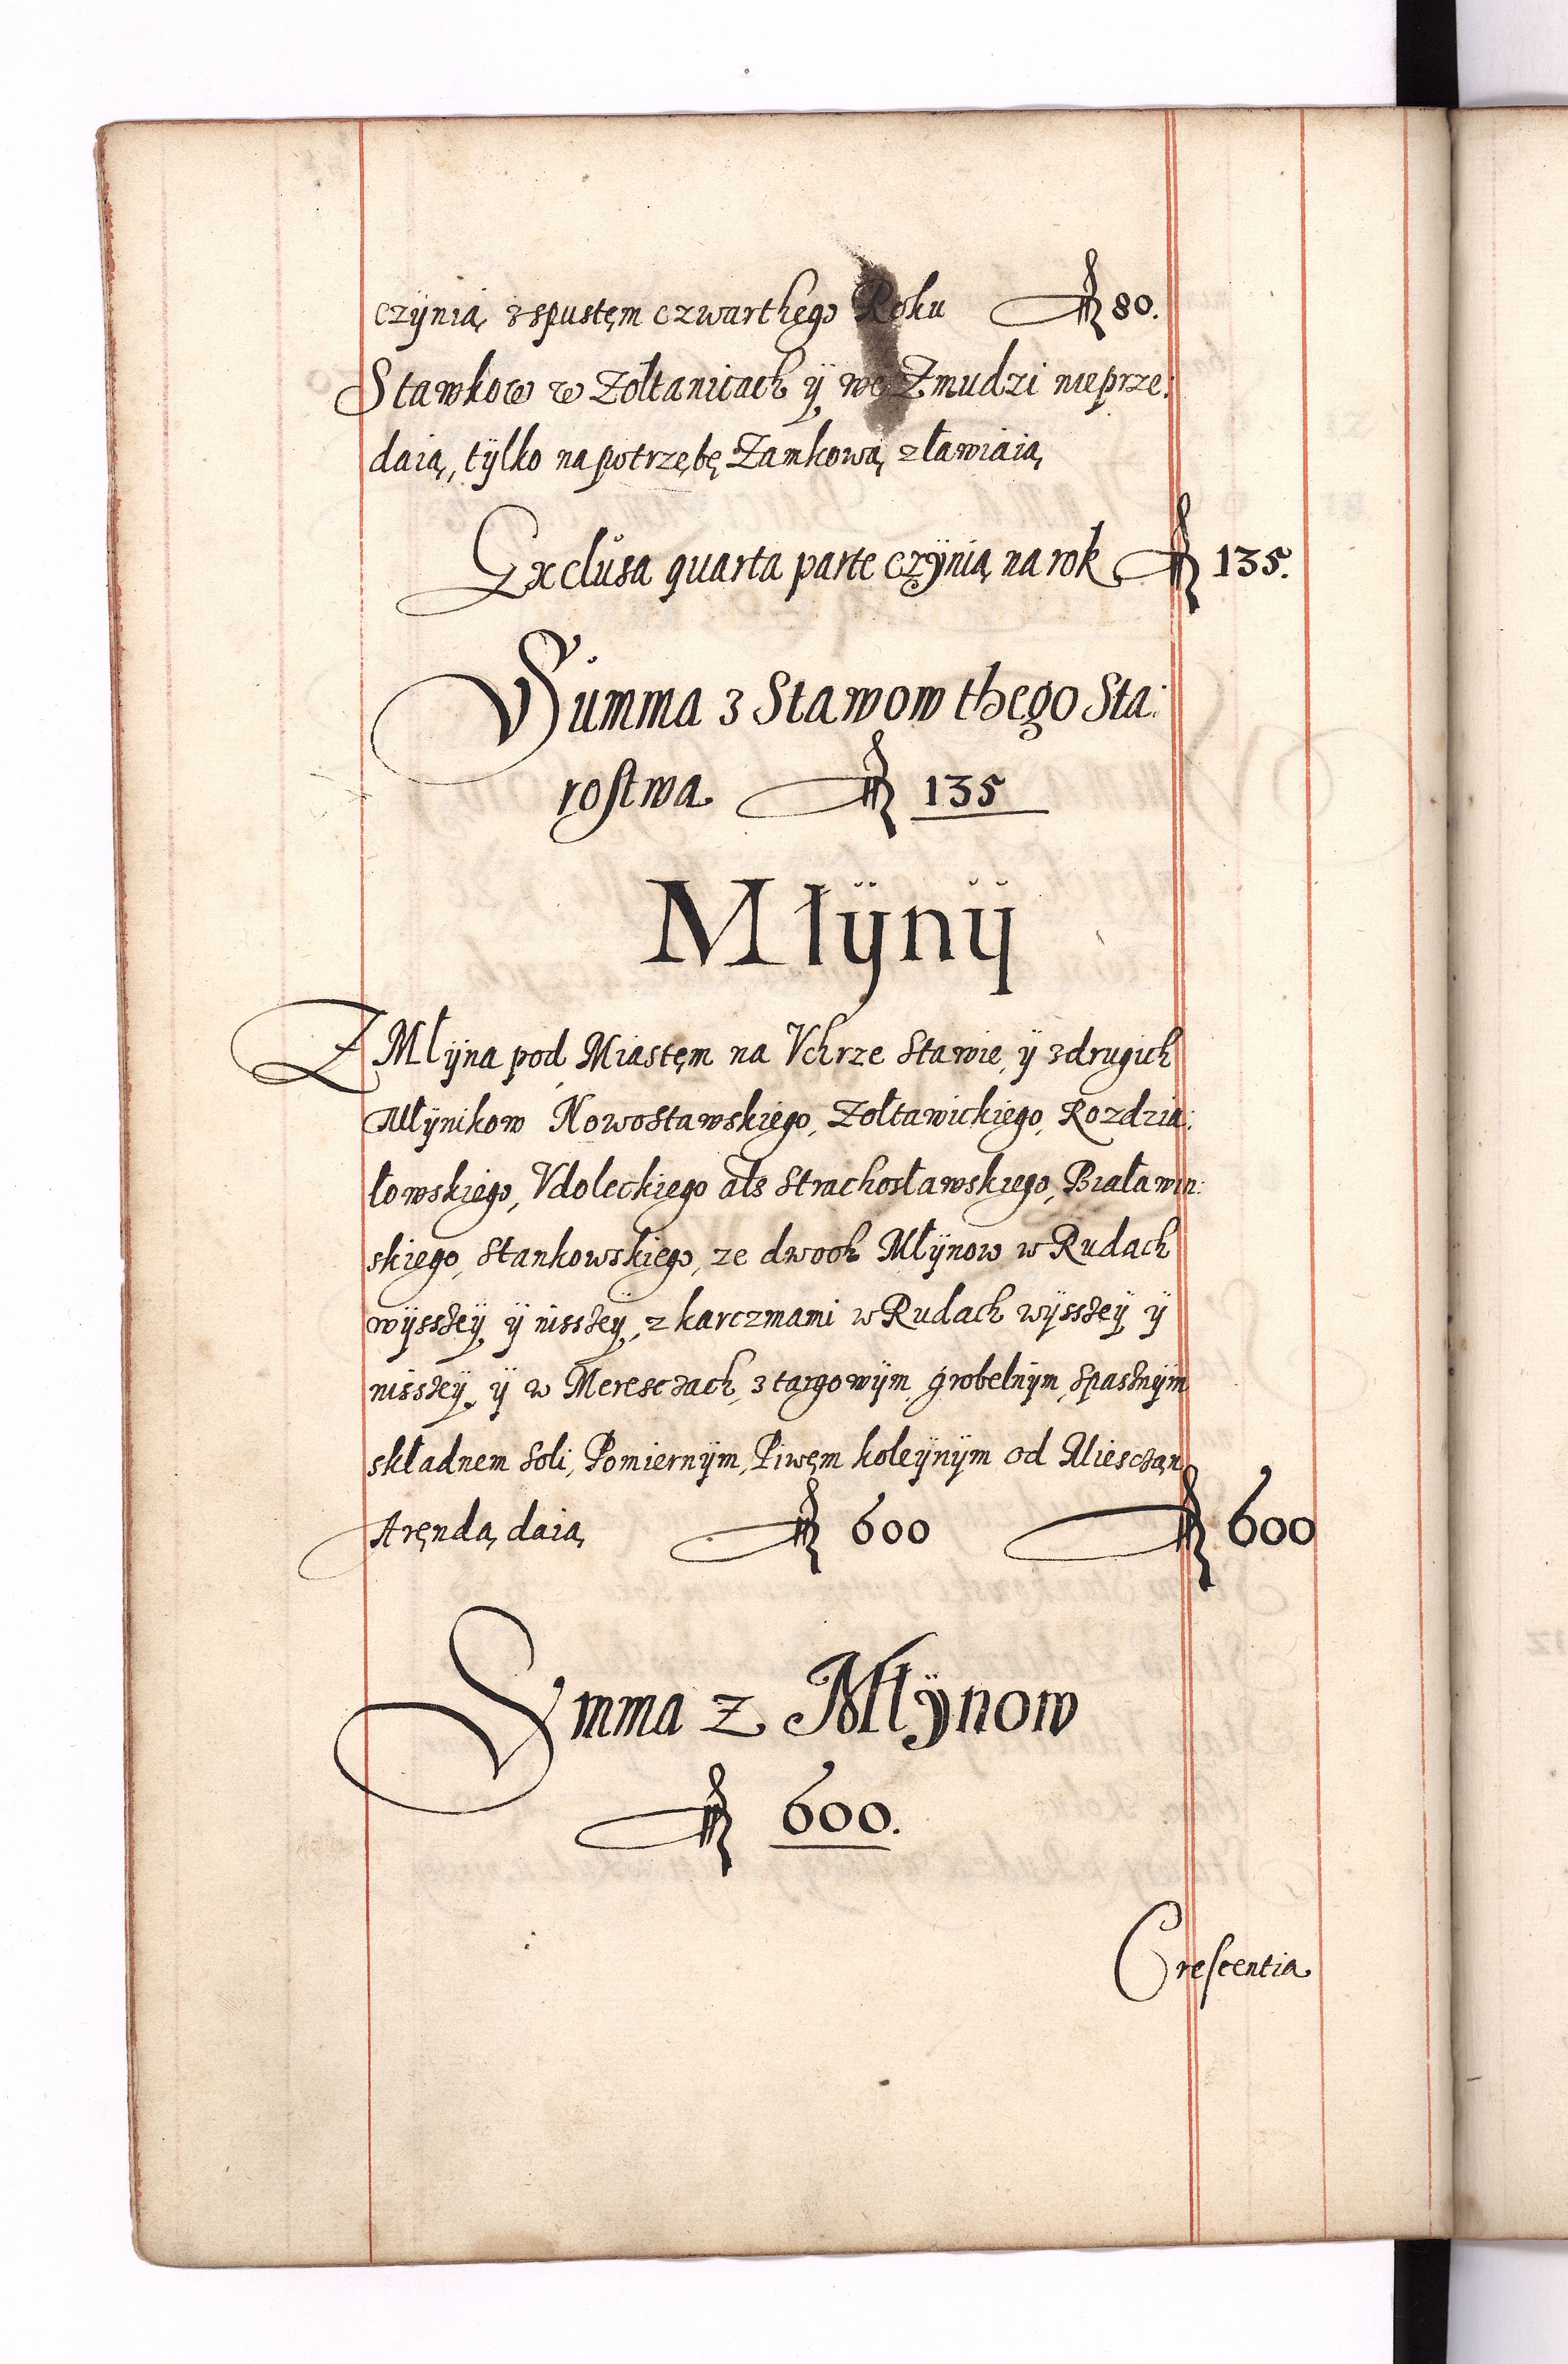 czÿnią z spustęm czwarthego Roku fl 80.
Stawkow w Zołtanicach ÿ we Zmudzi nieprze:
daią, tÿlko na potrzębę Zamkową zławiaią
Exclusa quarta parte czÿnią na rok fl 135.
Summa z Stawow thego Sta:
rostwa fl 135
Młÿnÿ
Z Młÿna pod Miastęm na Vchrze Stawie, ÿ z drugich
Młÿnikow Nowostawskiego, Zołtawickiego, Rozdzia:
łowskiego, Vdoleckiego als Strachosławskiego, Białawin:
skiego, Stankowskiego, ze dwoch Młÿnow w Rudach
wÿsszeÿ ÿ nisszeÿ, z karczmami w Rudach wÿsszeÿ ÿ
nisszeÿ ÿ w Meresczach, z targowÿm, grobelnÿm, spasznÿm
składnem soli, Pomiernÿm, Piwęm koleÿnÿm od Miesczan
Aręndą daią fl 600 fl 600
Summa z Młÿnow
fl 600.
Crescentia